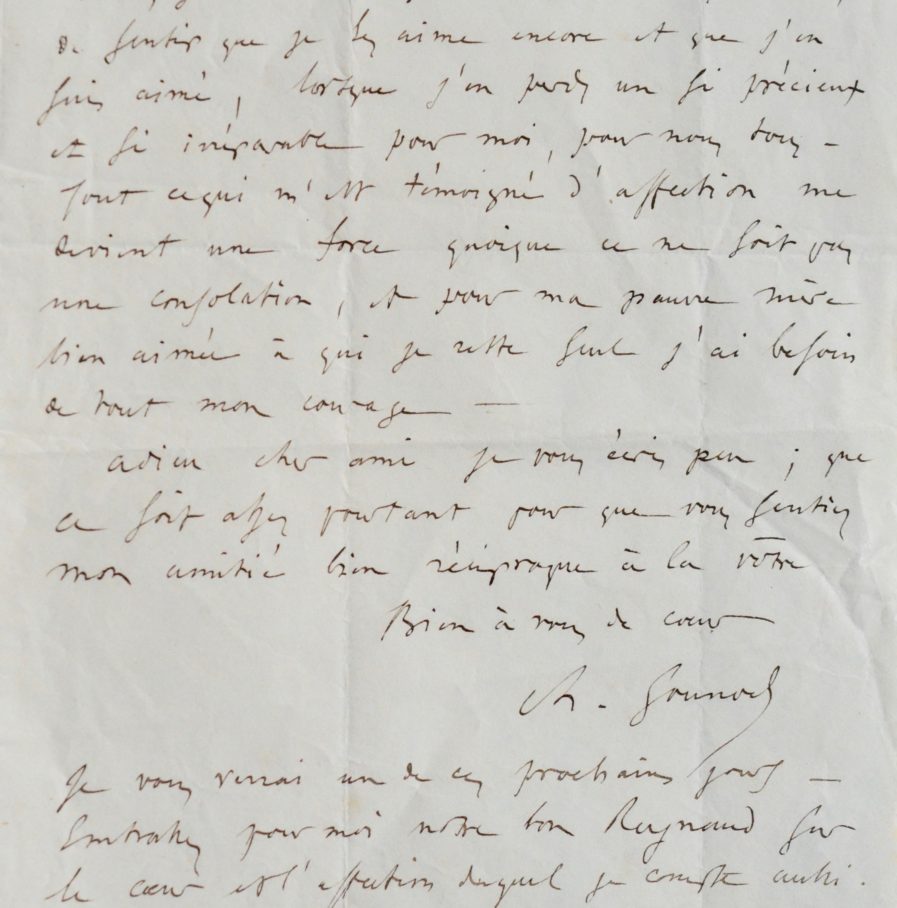 de sentir que je les aime encore et que j'en
suis aimé, lorsque j'en perds un si précieux
et si irréparable pour moi, pour nous tous -
Tout ce qui m'est témoigné d'affection me
devient une force quoique ce ne soit pas
une consolation, et pour ma pauvre mère
bien aimée à qui je reste seul j'ai besoin
de tout mon courage —
adieu cher ami je vous écris peu ; que
ce soit assez pourtant pour que vous sentiez
mon amitié bien réciproque à la vôtre
Bien à vous de cœur
Ch. Gounod
Je vous verrai un de ces prochains jours —
Embrassez pour moi notre bon Reynaud sur
le cœur et l'affection duquel je compte aussi.